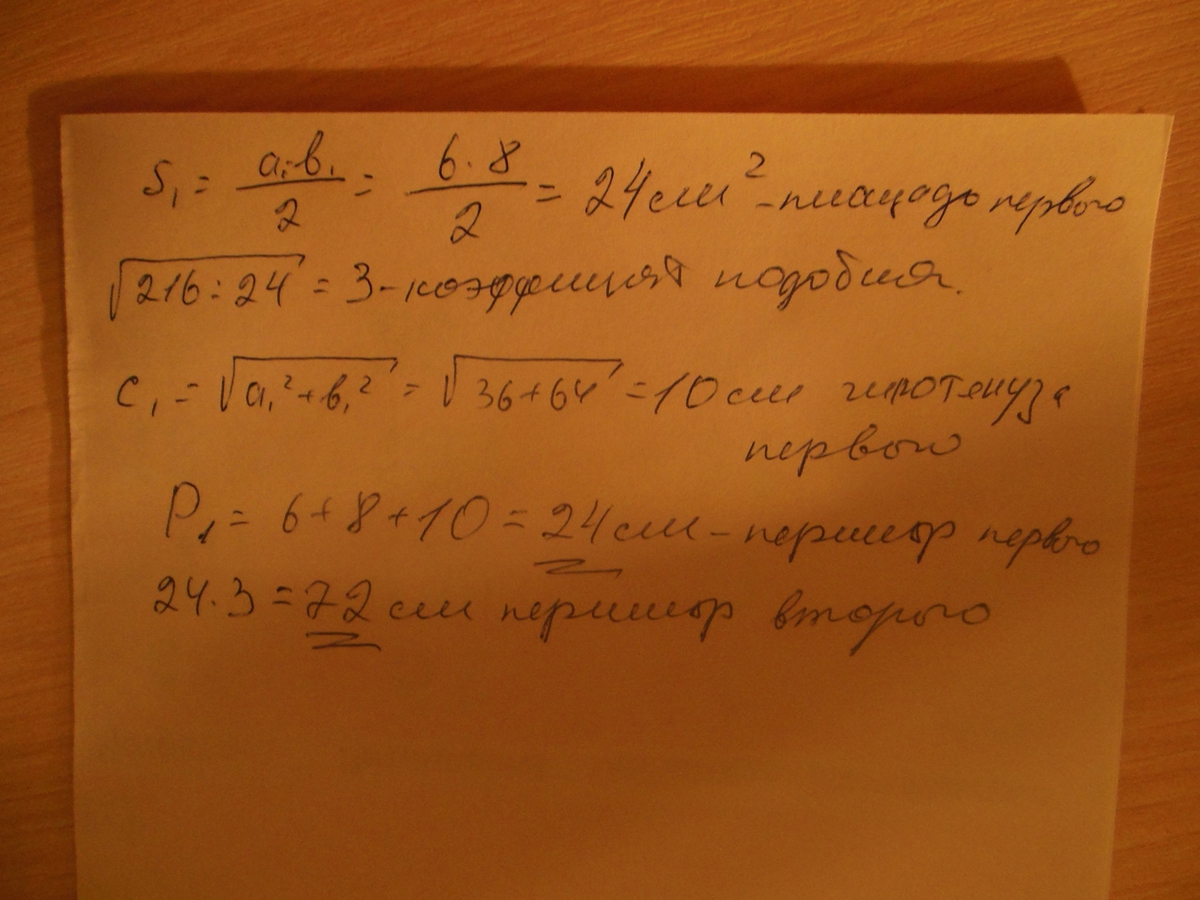 S₁ = a₁·b₁/2 = 6·8/2 = 24 см² - площадь первого
√216:24 = 3 - коэффициент подобия.
c₁ = √a₁²+b₁² = √36+64 = 10 см гипотенуза
первого
P₁ = 6+8+10 = 24 см - первого
24·3 = 72 см второго